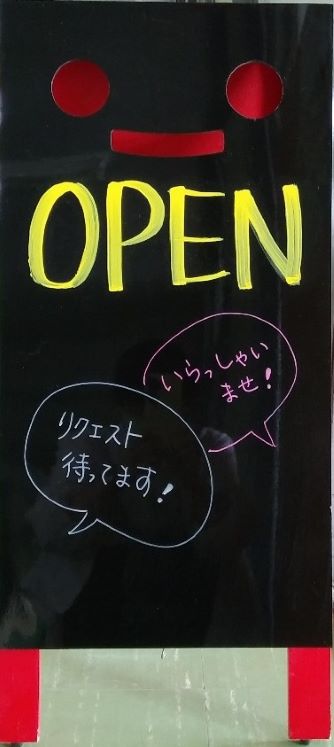 OPEN
いらっしゃい
ませ!
リクエスト
待ってます!